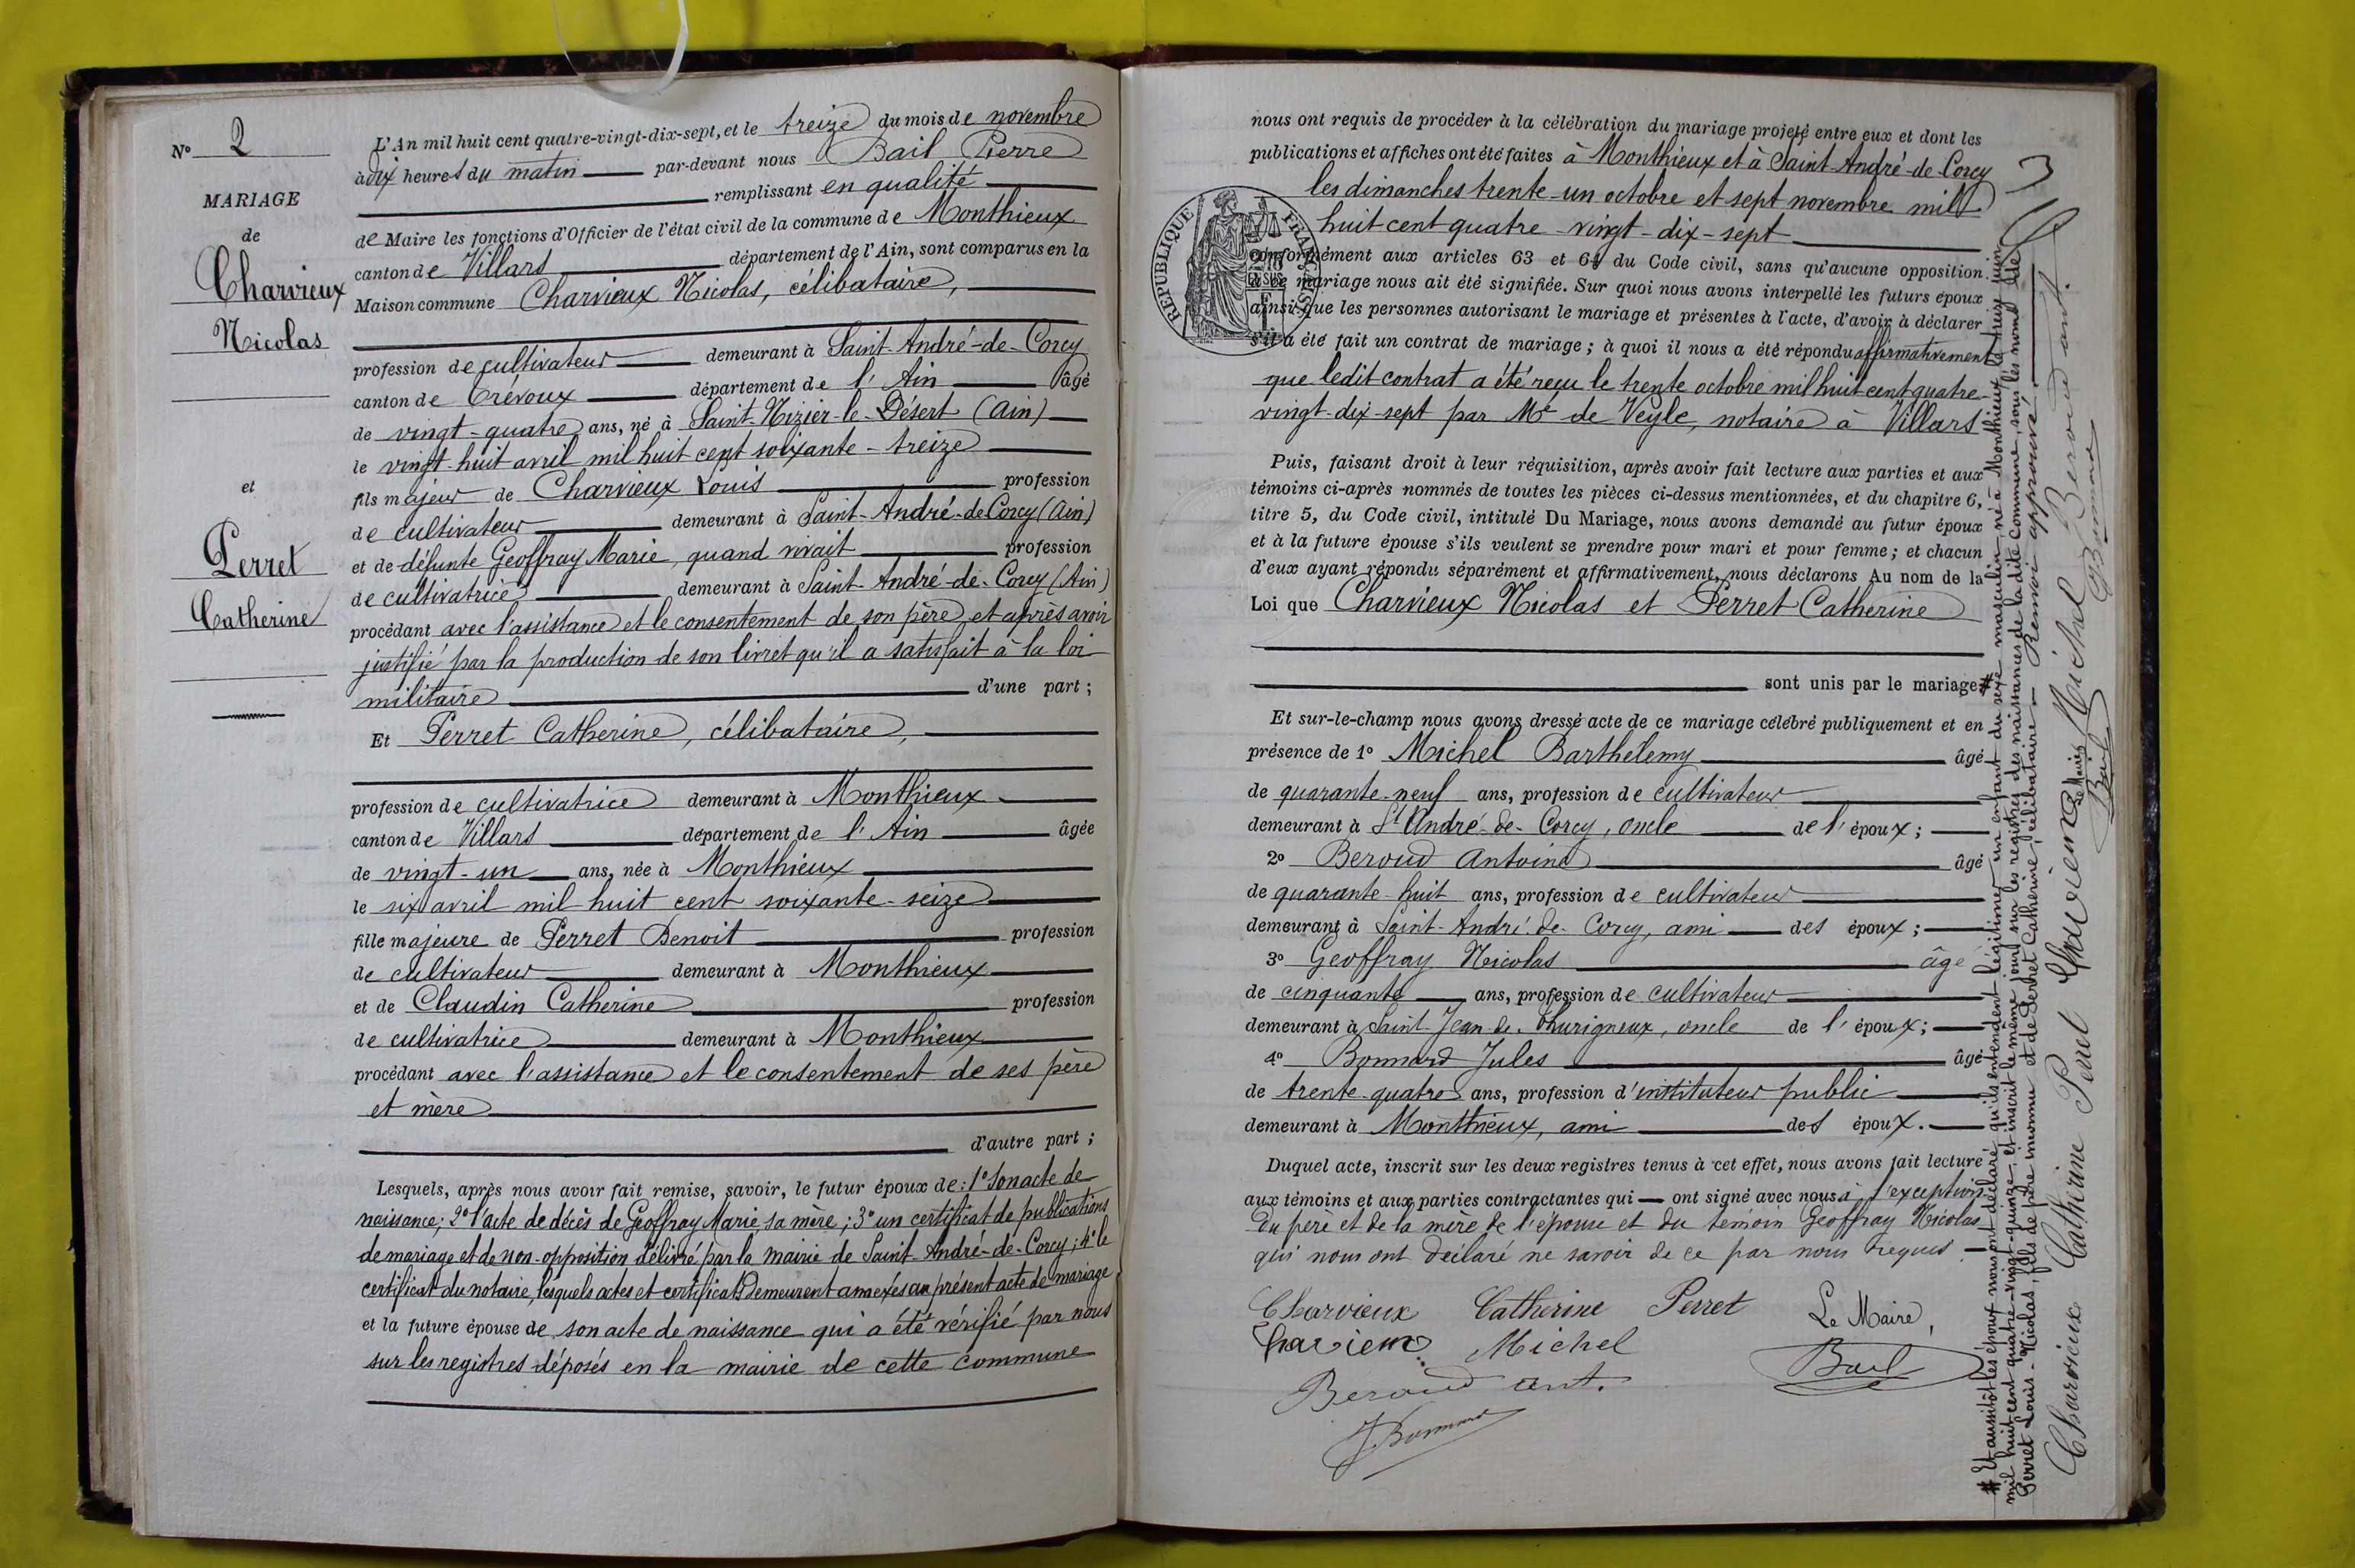 N° 2
MARIAGE
de
Charvieux
Nicolas
et
Perret
Catherine
L'An mil huit cent quatre-vingt-dix-sept, et le treize du mois de novembre
à dix heures du matin par-devant nous Bail Pierre
remplissant en qualité
de Maire les fonctions d'Officier de l'état civil de la commune de Monthieux
canton de Villars département de l'Ain, sont comparus en la
Maison commune Charvieux Nicolas, célibataire,
profession de cultivateur demeurant à Saint-André-de-Corcy
canton de Trévoux département de l'Ain âgé
de vingt-quatre ans, né à Saint-Nizier-le-Désert (Ain)
le vingt-huit avril mil huit cent soixante-treize
fils majeur de Charvieux Louis profession
de cultivateur demeurant à Saint-André-de Corcy (Ain)
et de défunte Geoffray Marie, quand vivait profession
de cultivatrice demeurant à Saint-André-de-Corcy (Ain)
procédant avec l'assistance et le consentement de son père et après avoir
justifié par la production de son livret qu'il a satisfait à la loi
militaire d'une part ;
Et Perret Catherine, célibataire,
profession de cultivatrice demeurant à Monthieux
canton de Villars département de l'Ain âgée
de vingt-un ans, née à Monthieux
le six avril mil huit cent soixante-seize
fille majeure de Perret Benoit profession
de cultivateur demeurant à Monthieux
et de Claudin Catherine profession
de cultivatrice demeurant à Monthieux
procédant avec l'assistance et le consentement de ses père
et mère
d'autre part ;
Lesquels, après nous avoir fait remise, savoir, le futur époux de : 1° Son acte de
naissance ; 2° l'acte de décès de Geoffray Marie, sa mère ; 3° un certificat de publications
de mariage et de non-opposition délivré par la mairie de Saint-André-de-Corcy ; 4° le
certificat du notaire, lesquels actes et certificats demeurent annexés au présent acte de mariage
et la future épouse de son acte de naissance qui a été vérifié par nous
sur les registres déposés en la mairie de cette commune
nous ont requis de procéder à la célébration du mariage projeté entre eux et dont les
publications et affiches ont été faites à Monthieux et à Saint-André-de-Corcy
les dimanches trente-un octobre et sept novembre mil
huit cent quatre-vingt-dix-sept
conformément aux articles 63 et 64 du Code civil, sans qu'aucune opposition
à ce mariage nous ait été signifiée. Sur quoi nous avons interpellé les futurs époux
ainsi que les personnes autorisant le mariage et présentes à l'acte, d'avoir à déclarer
s'il a été fait un contrat de mariage ; à quoi il nous a été répondu affirmativement
que ledit contrat a été reçu le trente octobre mil huit cent quatre-
vingt-dix-sept par Me de Veyle, notaire à Villars
Puis, faisant droit à leur réquisition, après avoir fait lecture aux parties et aux
témoins ci-après nommés de toutes les pièces ci-dessus mentionnées, et du chapitre 6,
titre 5, du Code civil, intitulé Du Mariage, nous avons demandé au futur époux
et à la future épouse s'ils veulent se prendre pour mari et pour femme ; et chacun
d'eux ayant répondu séparément et affirmativement, nous déclarons Au nom de la
Loi que Charvieux Nicolas et Perret Catherine
sont unis par le mariage #
Et sur-le-champ nous avons dressé acte de ce mariage célébré publiquement et en
présence de 1° Michel Barthelemy âgé
de quarante-neuf ans, profession de cultivateur
demeurant à St André-de-Corcy, oncle de l'époux ;
2° Beroud Antoine âgé
de quarante-huit ans, profession de cultivateur
demeurant à Saint-André-de-Corcy, ami des époux ;
3° Geoffray Nicolas âgé
de cinquante ans, profession de cultivateur
demeurant à Saint-Jean-de-Thurigneux, oncle de l'époux ;
4° Bonnard Jules âgé
de trente-quatre ans, profession d'instituteur public
demeurant à Monthieux, ami des époux.
Duquel acte, inscrit sur les deux registres tenus à cet effet, nous avons fait lecture
aux témoins et aux parties contractantes qui ont signé avec nous à l'exception
du père et de la mère de l'épouse et du témoin Geoffray Nicolas
qui nous ont déclaré ne savoir de ce par nous requis
Charvieux Catherine Perret Le Maire,
Charvieux Michel Bail
Beroud ant.
J Bonnard
RÉPUBLIQUE FRANÇAISE
# Et aussitôt les époux nous ont déclaré qu'ils entendent légitimer un enfant du sexe masculin, né à Monthieux le treize juin
mil huit cent quatre-vingt-quinze, et inscrit le même jour sur les registres des naissances de la dite commune, sous les noms de
Perret Louis-Nicolas, fils de père inconnu et de Perret Catherine, célibataire — Renvoi approuvé.
Charvieux Catherine Perret Charvieux Michel Beroud ant.
Le Maire Bail J Bonnard